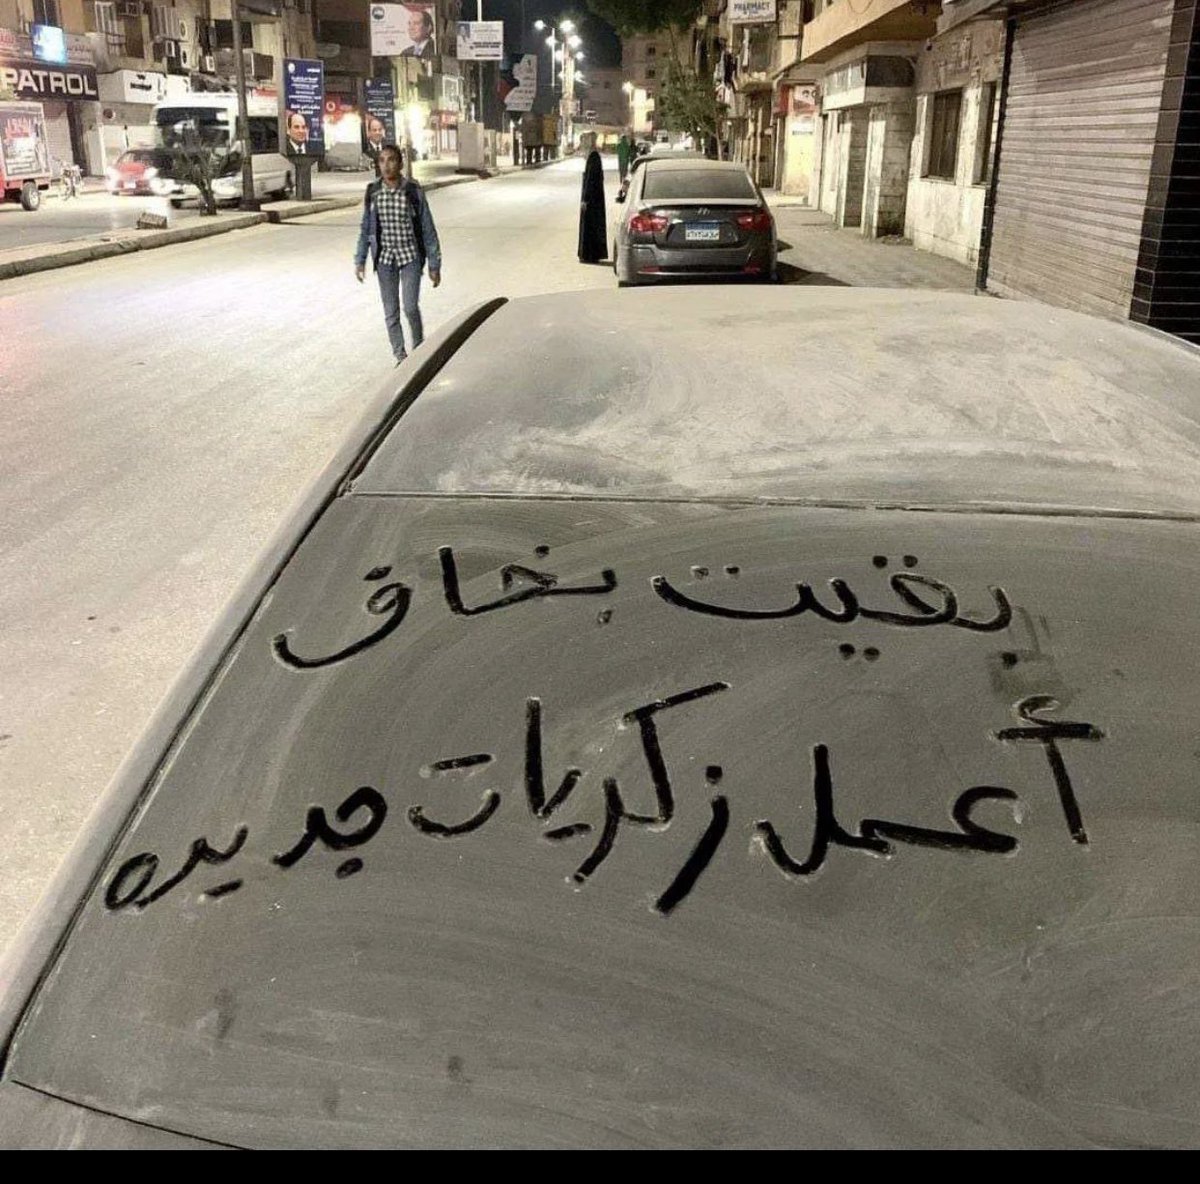 PATROL
PHARMACY
بقيت بخاف
أعمل زكريات جديده